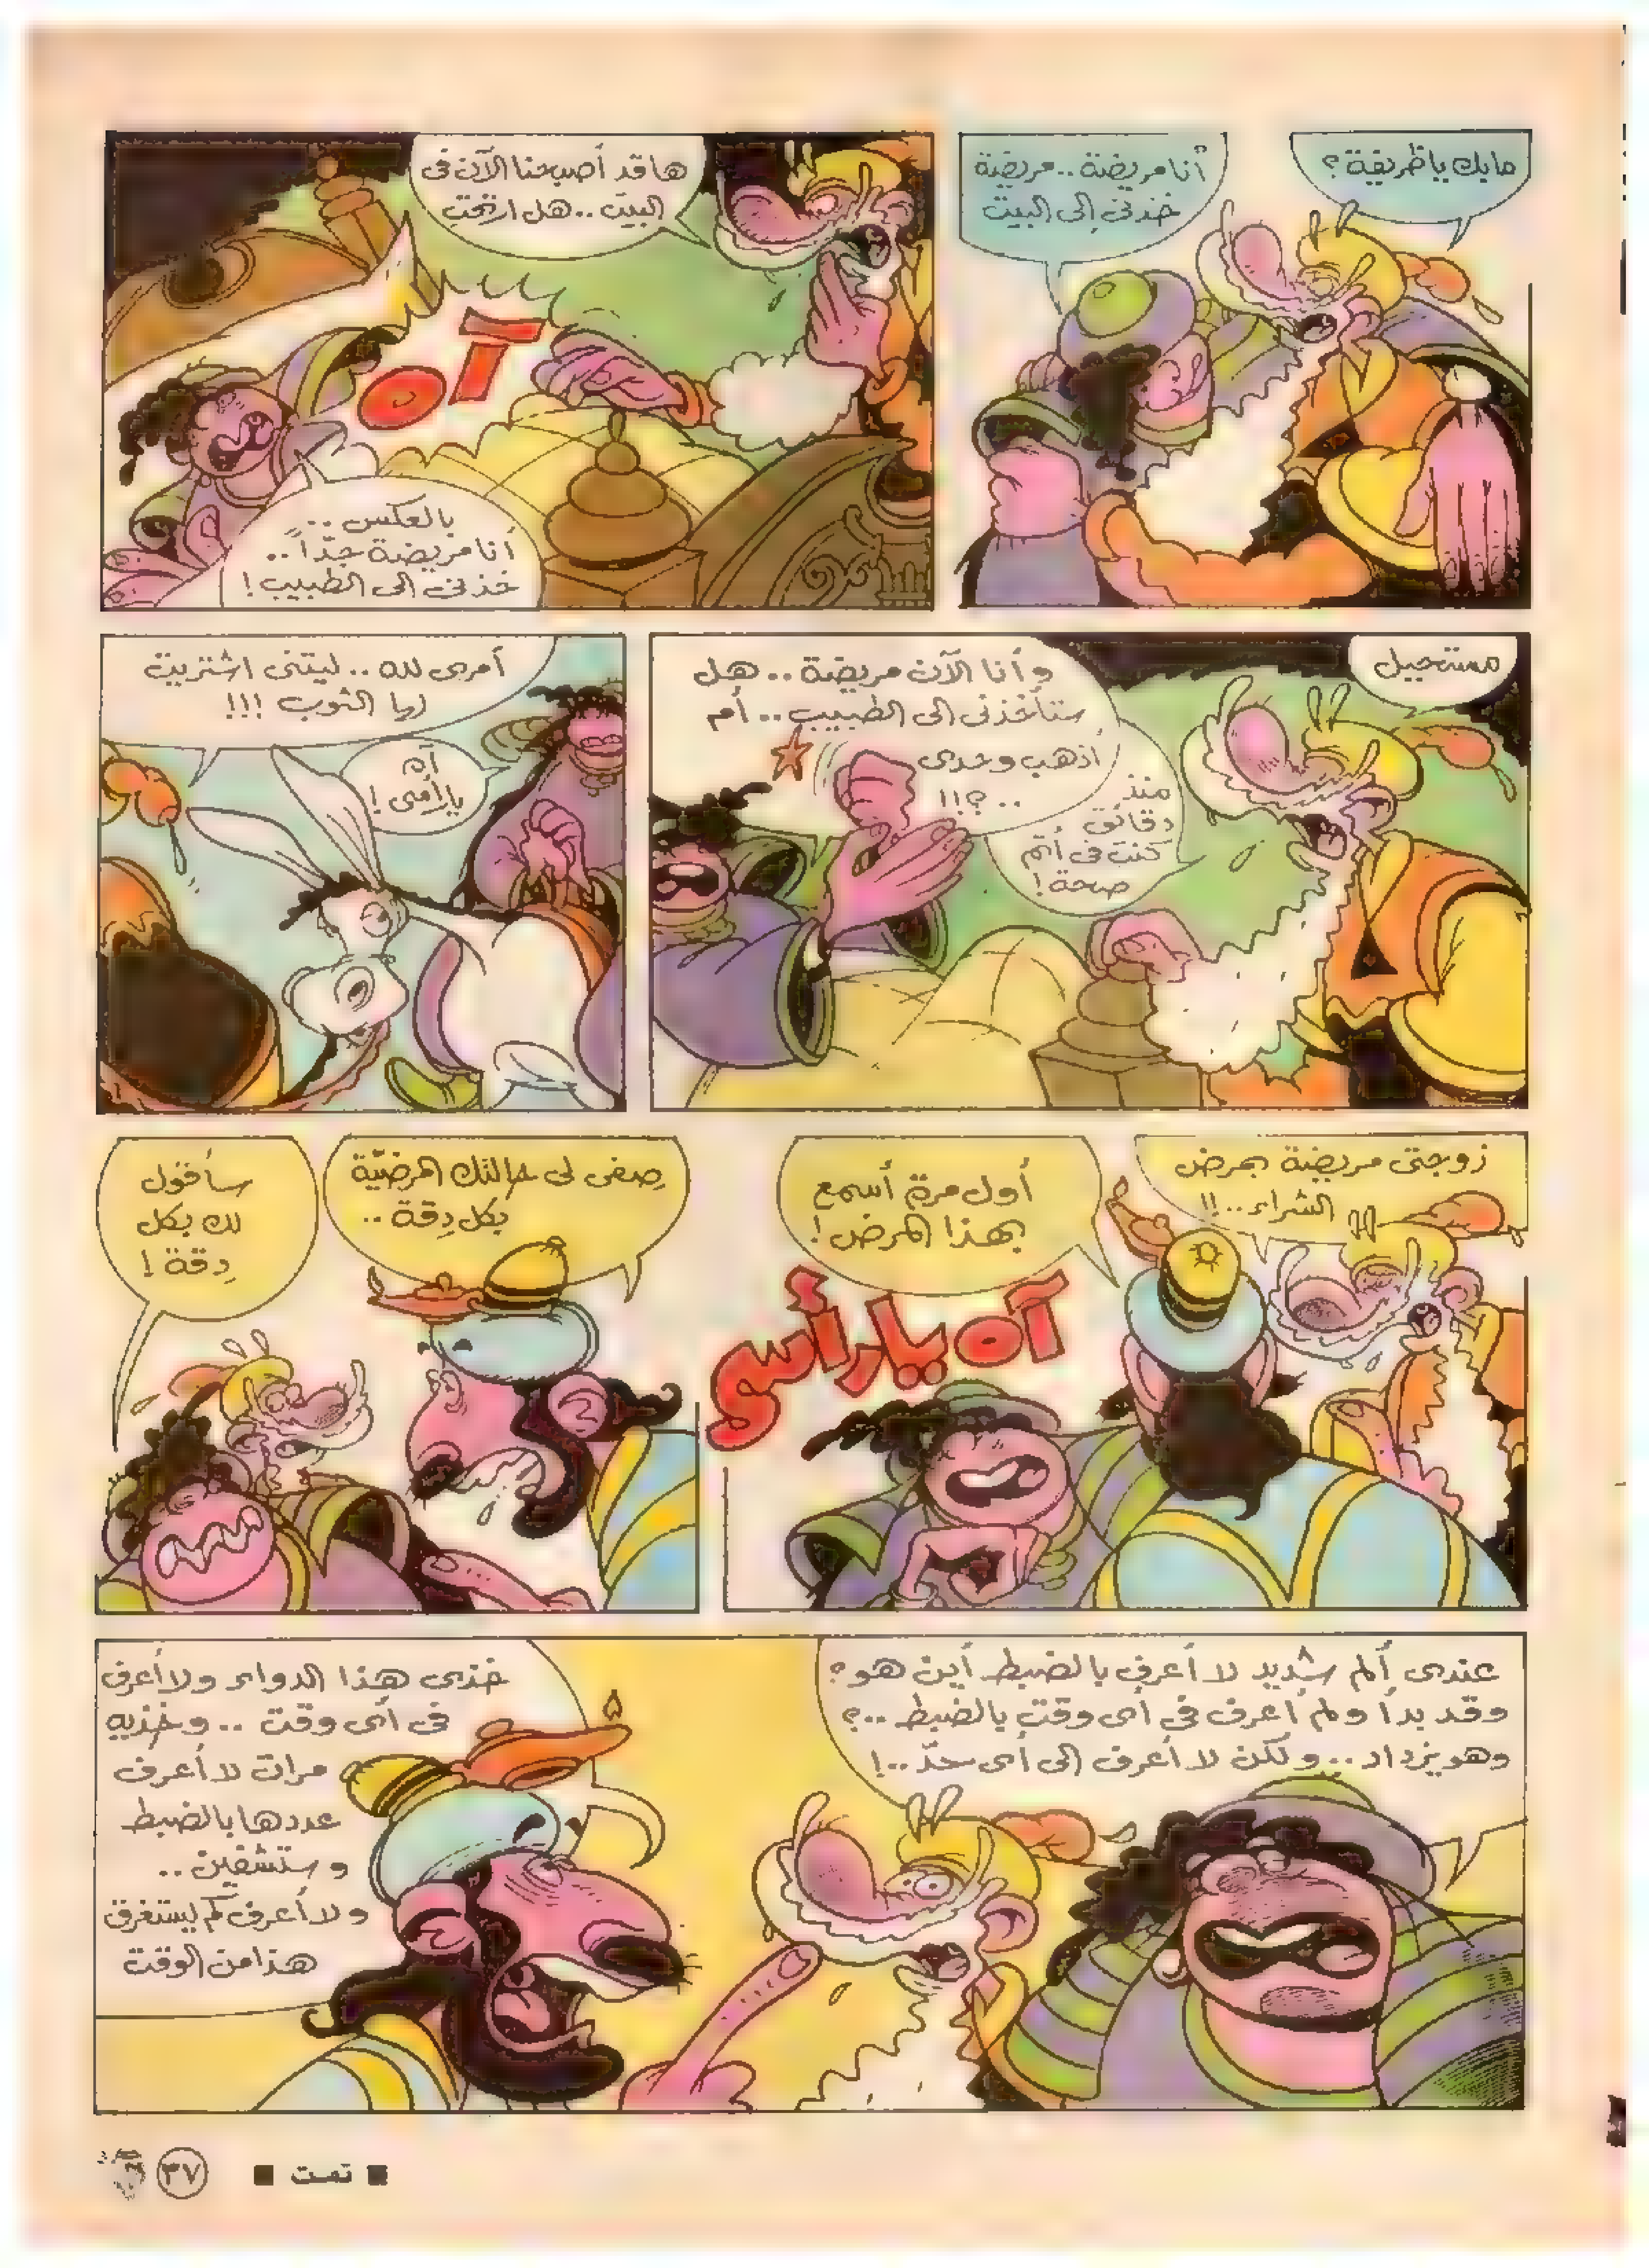 مابك ياظريفة؟
أنا مريضة.. مريضة
خذنى إلى البيت
ها قد أصبحنا الآن فى
البيت.. هل ارتحتِ
آه
بالعكس..
أنا مريضة جدّاً..
خذنى الى الطبيب!
مستحيل
وأنا الآن مريضة.. هل
ستأخذنى الى الطبيب.. أم
أذهب وحدى
..؟!!
منذ
دقائق
كنت فى أتم
صحة!
أمرى لله.. ليتنى اشتريت
لها الثوب!!!
آه
يارأسى!
زوجتى مريضة بمرض
الشراء..!!
أول مرة أسمع
بهذا المرض!
آه يارأسى
صِفى لى حالتك المرضيّة
بكل دِقة..
سأقول
لك بكل
دِقة!
عندى ألم شديد لا أعرف بالضبط أين هو؟
وقد بدأ ولم أعرف فى أى وقت بالضبط..؟
وهو يزداد.. ولكن لا أعرف إلى أى حدّ..!
خذى هذا الدواء ولا أعرف
فى أى وقت.. وخذيه
مرات لا أعرف
عددها بالضبط
وستشفين..
ولا أعرف كم يستغرق
هذا من الوقت
■ تمت ■
٣٧